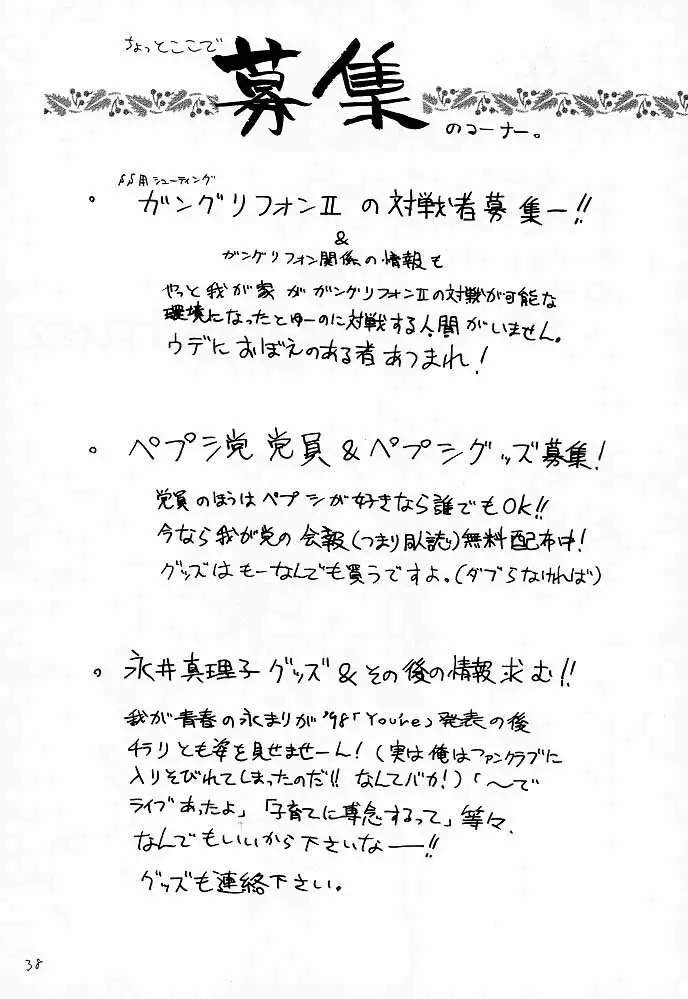 ちょっとここで
募集
のコーナー。
SS用シューティング
・ ガングリフォンⅡ の対戦者募集ー!!
&
ガングリフォン関係の情報も
やっと我が家がガングリフォンⅡの対戦が可能な
環境になったとゆーのに対戦する人間がいません。
ウデにおぼえのある者あつまれ!
・ ペプシ党 党員&ペプシグッズ募集!
党員のほうはペプシが好きなら誰でもOK!!
今なら我が党の会報(つまり同人誌)無料配布中!
グッズはもーなんでも買うですよ。(ダブらなければ)
・ 永井真理子グッズ&その後の情報求む!!
我が青春の永まりが'98「You're」発表の後
チラリとも姿を見せませーん!(実は俺はファンクラブに
入りそびれてしまったのだ!!なんてバカ!)「〜で
ライブあったよ」「子育てに専念するって」等々、
なんでもいいから下さいなー!!
グッズも連絡下さい。
38